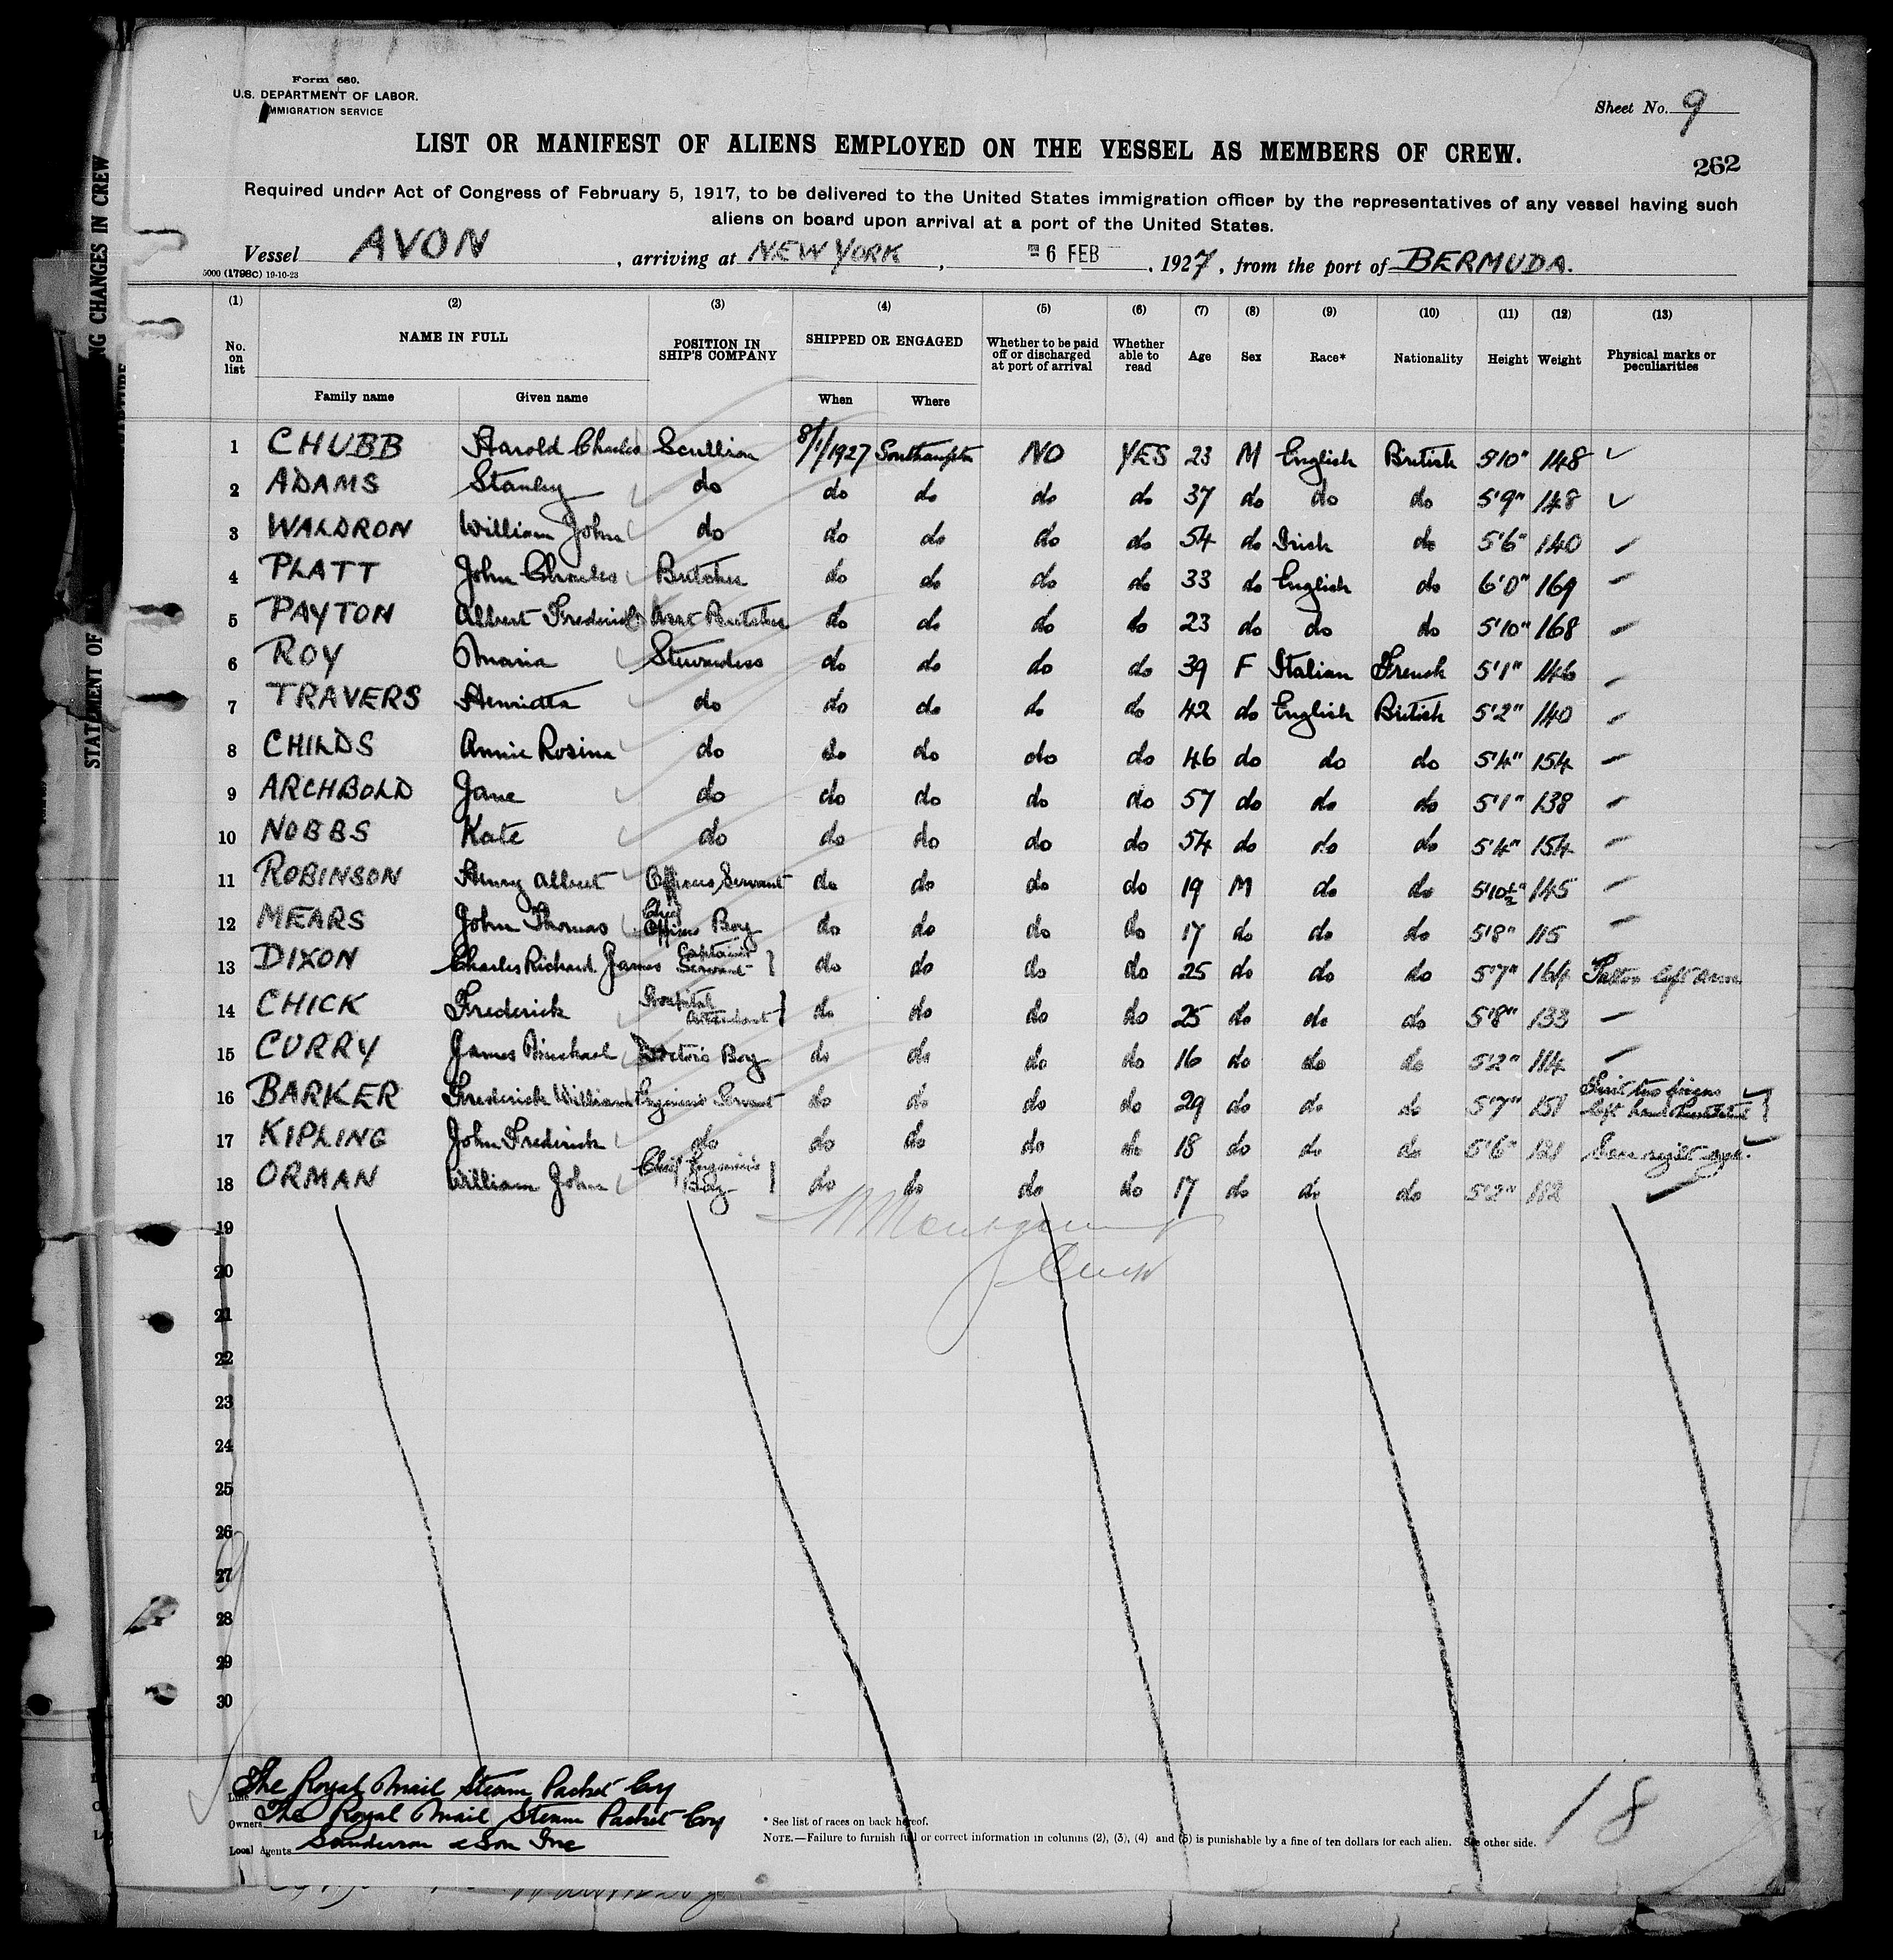 Form 680.
U.S. DEPARTMENT OF LABOR.
IMMIGRATION SERVICE
Sheet No. 9
LIST OR MANIFEST OF ALIENS EMPLOYED ON THE VESSEL AS MEMBERS OF CREW.
262
Required under Act of Congress of February 5, 1917, to be delivered to the United States immigration officer by the representatives of any vessel having such
aliens on board upon arrival at a port of the United States.
Vessel AVON, arriving at NEW YORK, 6 FEB, 1927, from the port of BERMUDA.
5000 (1798C) 19-10-23
(1) (2) (3) (4) (5) (6) (7) (8) (9) (10) (11) (12) (13)
No. on list NAME IN FULL POSITION IN SHIP'S COMPANY SHIPPED OR ENGAGED Whether to be paid off or discharged at port of arrival Whether able to read Age Sex Race* Nationality Height Weight Physical marks or peculiarities
Family name Given name When Where
1 CHUBB Harold Charles Scullion 8/1/1927 Southampton NO YES 23 M English British 5'10" 148
2 ADAMS Stanley do do do do do 37 do do do 5'9" 148
3 WALDRON William John do do do do do 54 do Irish do 5'6" 140
4 PLATT John Charles Butcher do do do do 33 do English do 6'0" 169
5 PAYTON Albert Frederick Asst Butcher do do do do 23 do do do 5'10" 168
6 ROY Maria Stewardess do do do do 39 F Italian French 5'1" 146
7 TRAVERS Henrietta do do do do do 42 do English British 5'2" 140
8 CHILDS Annie Rosina do do do do do 46 do do do 5'4" 154
9 ARCHBOLD Jane do do do do do 57 do do do 5'1" 138
10 NOBBS Kate do do do do do 54 do do do 5'4" 154
11 ROBINSON Henry Albert Officers Servant do do do do 19 M do do 5'10½" 145
12 MEARS John Thomas Chief Officers Boy do do do do 17 do do do 5'8" 115
13 DIXON Charles Richard James Captains Servant do do do do 25 do do do 5'7" 164 Tattoo left arm
14 CHICK Frederick Hospital Attendant do do do do 25 do do do 5'8" 133
15 CURRY James Michael Doctors Boy do do do do 16 do do do 5'2" 114
16 BARKER Frederick William Engineers Servant do do do do 29 do do do 5'7" 151 two fingers left hand
17 KIPLING John Frederick do do do do do 18 do do do 5'6" 121 Scar right eye.
18 ORMAN William John Chief Engineers Boy do do do do 17 do do do 5'2" 112
19
20
21
22
23
24
25
26
27
28
29
30
Line The Royal Mail Steam Packet Coy
Owners The Royal Mail Steam Packet Coy
Local Agents Sanderson & Son Inc
* See list of races on back hereof.
NOTE.—Failure to furnish full or correct information in columns (2), (3), (4) and (5) is punishable by a fine of ten dollars for each alien. See other side.
18
NG CHANGES IN CREW
STATEMENT OF